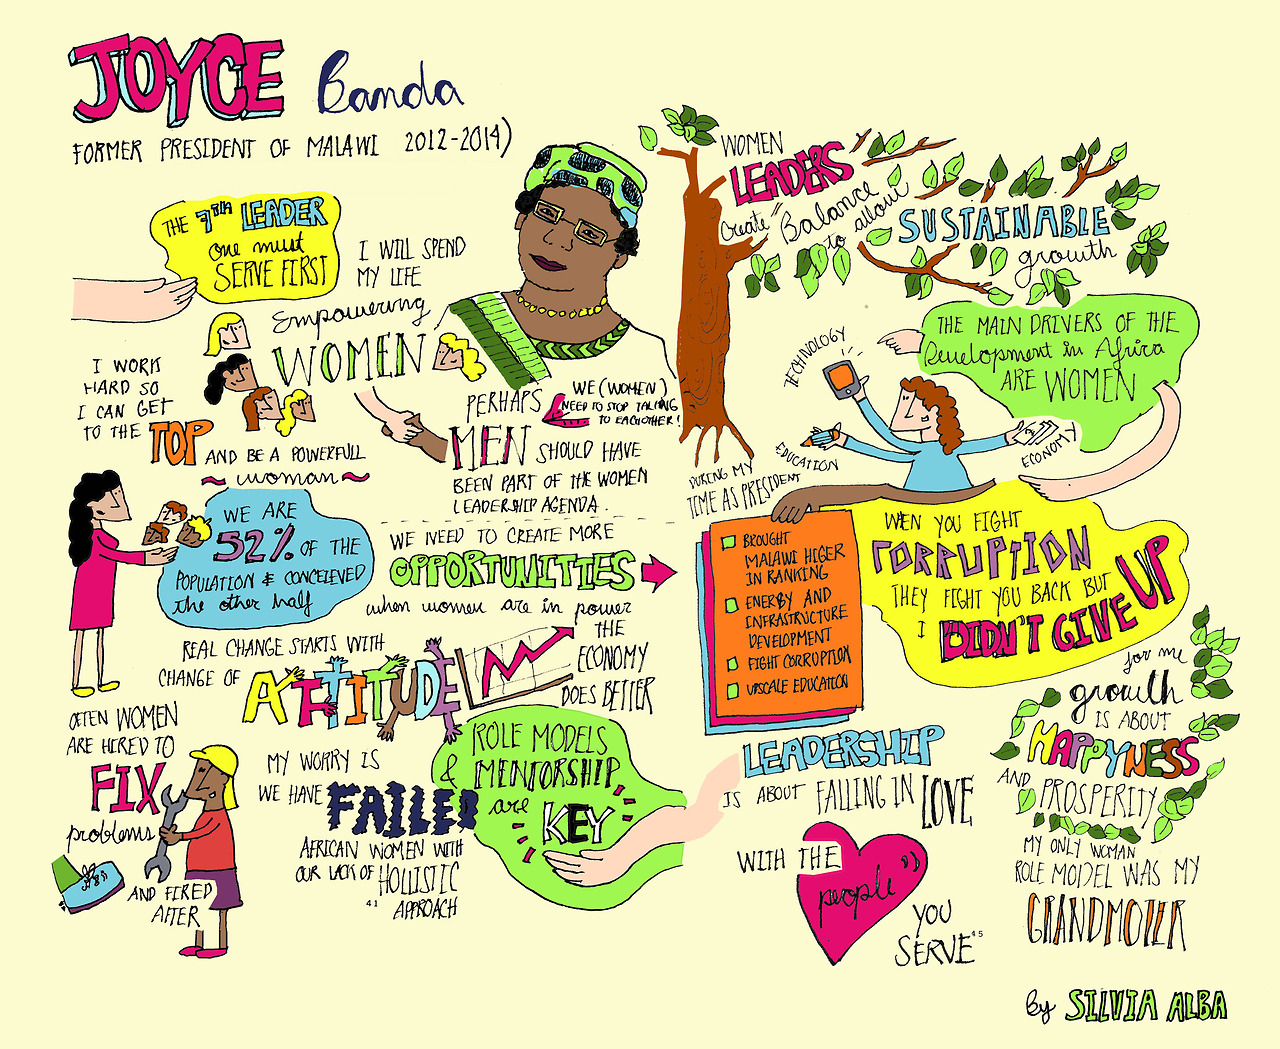 JOYCE Banda
FORMER PRESIDENT OF MALAWI 2012-2014)
THE 7TH LEADER
one must
SERVE FIRST
I WILL SPEND
MY LIFE
Empowering
WOMEN
I WORK
HARD SO
I CAN GET
TO THE TOP
AND BE A POWERFULL
~ woman ~
PERHAPS
MEN SHOULD HAVE
BEEN PART OF THE WOMEN
LEADERSHIP AGENDA.
WE (WOMEN)
NEED TO STOP TALKING
TO EACHOTHER!
WE ARE
52% OF THE
POPULATION & CONCEIEVED
the other half
WE NEED TO CREATE MORE
OPPORTUNITIES
when women are in power
THE
ECONOMY
DOES BETTER
REAL CHANGE STARTS WITH
CHANGE OF ATTITUDE
OFTEN WOMEN
ARE HIRED TO
FIX
problems
AND FIRED
AFTER
MY WORRY IS
WE HAVE FAILED
AFRICAN WOMEN WITH
OUR LACK OF HOLLISTIC
41 APPROACH
ROLE MODELS
& MENTORSHIP
are KEY
WOMEN
LEADERS
Create "Balance
to allow
SUSTAINABLE
growth
THE MAIN DRIVERS OF THE
Development in Africa
ARE WOMEN
TECHNOLOGY
EDUCATION
ECONOMY
DURING MY
TIME AS PRESIDENT
BROUGHT
MALAWI HIGER
IN RANKING
ENERBY AND
INFRASTRUCTURE
DEVELOPMENT
FIGHT CORRUPTION
UPSCALE EDUCATION
WEN YOU FIGHT
CORRUPTION
THEY FIGHT YOU BACK BUT
I DIDN'T GIVE UP
for me
growth
IS ABOUT
HAPPYNESS
AND PROSPERITY
LEADERSHIP
IS ABOUT FALLING IN LOVE
WITH THE
people"
YOU
SERVE 45
MY ONLY WOMAN
ROLE MODEL WAS MY
GRANDMOTER
by SILVIA ALBA